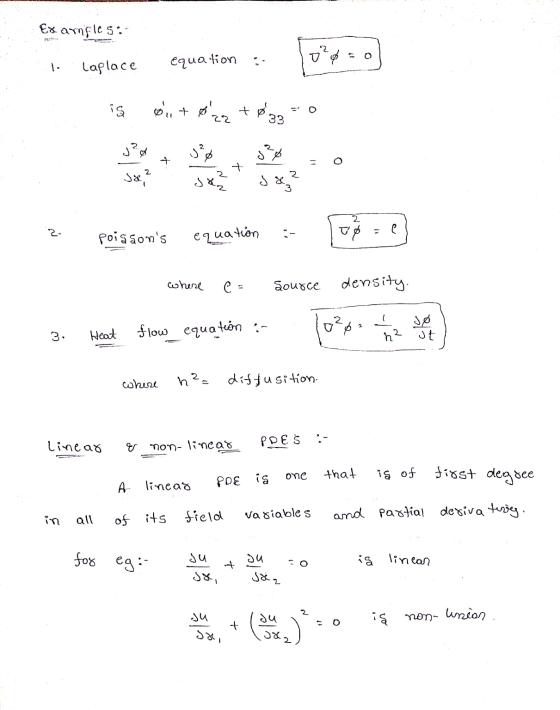 Examples:-
1. Laplace equation :- ∇²φ = 0
is φ'₁₁ + φ'₂₂ + φ'₃₃ = 0
∂²φ/∂x₁² + ∂²φ/∂x₂² + ∂²φ/∂x₃² = 0
2. Poisson's equation :- ∇²φ = ρ
where ρ = Source density.
3. Heat flow equation :- ∇²φ = 1/h² ∂φ/∂t
where h² = diffusition.
Linear & non-linear PDES :-
A linear PDE is one that is of first degree
in all of its field variables and partial derivatives.
for eg:- ∂u/∂x₁ + ∂u/∂x₂ = 0 is linear
∂u/∂x₁ + (∂u/∂x₂)² = 0 is non-linear.